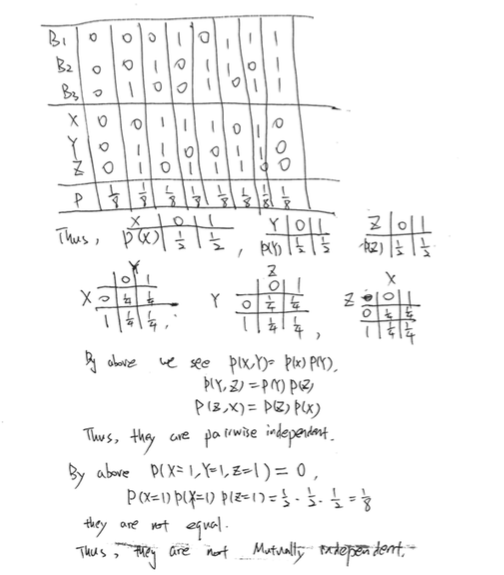 B1 0 0 0 1 0 1 1 1
B2 0 0 1 0 1 1 0 1
B3 0 1 0 0 1 0 1 1
X 0 0 1 1 1 0 1 0
Y 0 1 1 0 0 1 1 0
Z 0 1 0 1 1 1 0 0
P 1/8 1/8 1/8 1/8 1/8 1/8 1/8 1/8
Thus, X 0 1 Y 0 1 Z 0 1
P(X) 1/2 1/2 , P(Y) 1/2 1/2 P(Z) 1/2 1/2
Y Z X
0 1 0 1 0 1
X 0 1/4 1/4 Y 0 1/4 1/4 Z 0 1/4 1/4
1 1/4 1/4 , 1 1/4 1/4 , 1 1/4 1/4
By above we see P(X,Y)= P(X) P(Y),
P(Y,Z) = P(Y) P(Z)
P(Z,X) = P(Z) P(X)
Thus, they are pairwise independent.
By above P(X=1,Y=1,Z=1) = 0,
P(X=1) P(Y=1) P(Z=1) = 1/2 · 1/2 · 1/2 = 1/8
they are not equal.
Thus, they are not Mutually independent.